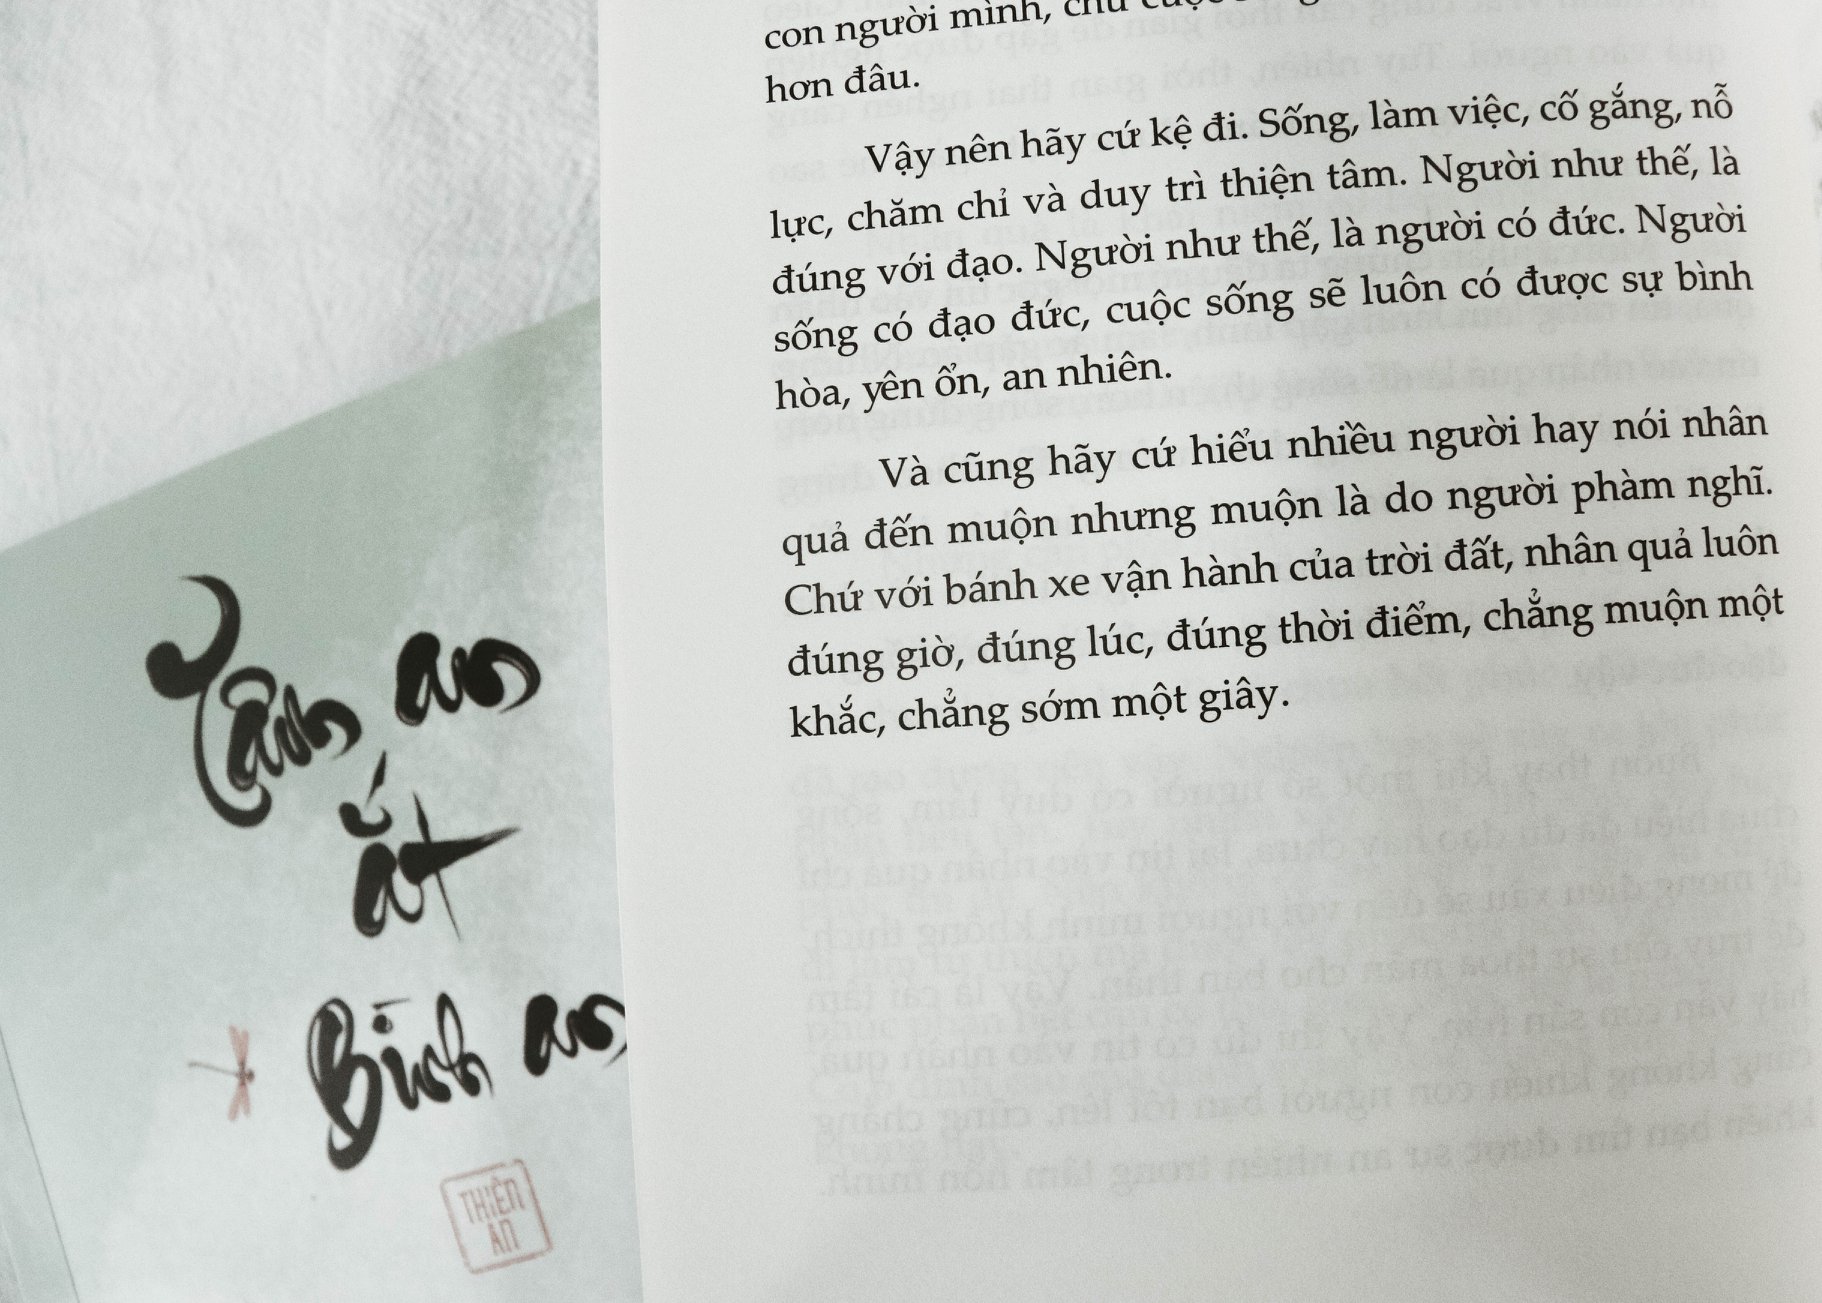 con người mình, chứ
hơn đâu.
Vậy nên hãy cứ kệ đi. Sống, làm việc, cố gắng, nỗ
lực, chăm chỉ và duy trì thiện tâm. Người như thế, là
đúng với đạo. Người như thế, là người có đức. Người
sống có đạo đức, cuộc sống sẽ luôn có được sự bình
hòa, yên ổn, an nhiên.
Và cũng hãy cứ hiểu nhiều người hay nói nhân
quả đến muộn nhưng muộn là do người phàm nghĩ.
Chứ với bánh xe vận hành của trời đất, nhân quả luôn
đúng giờ, đúng lúc, đúng thời điểm, chẳng muộn một
khắc, chẳng sớm một giây.
Tâm an
ắt
Bình an
THIÊN
AN